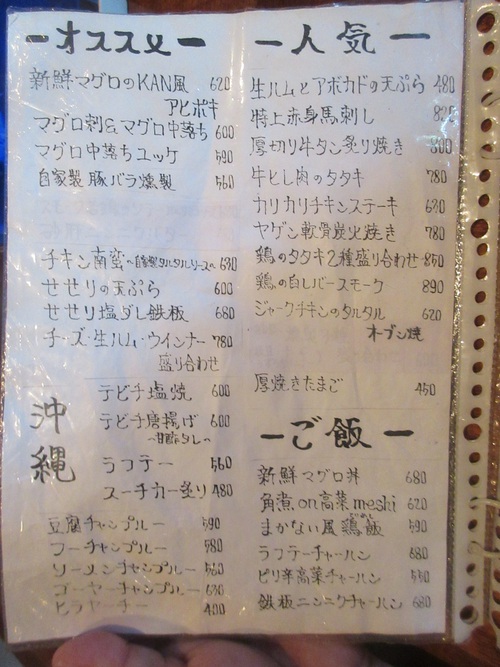 ーオススメー
新鮮マグロのKAN風 620
アヒポキ
マグロ刺&マグロ中落ち 600
マグロ中落ちユッケ 590
自家製豚バラ燻製 560
チキン南蛮~自家製タルタルソース~ 630
せせりの天ぷら 600
せせり塩ダレ鉄板 680
チーズ・生ハム・ウインナー 780
盛り合わせ
沖縄
テビチ塩焼 600
テビチ唐揚げ 600
~甘酢タレ~
ラフテー 560
スーチカー炙り 480
豆腐チャンプルー 590
フーチャンプルー 580
ソーメンチャンプルー 560
ゴーヤーチャンプルー 630
ヒラヤーチー 400
ー人気ー
生ハムとアボカドの天ぷら 480
特上赤身馬刺し
厚切り牛タン炙り焼き 800
牛とし肉のタタキ 780
カリカリチキンステーキ 630
ヤゲン軟骨炭火焼き 780
鶏のタタキ2種盛り合わせ 850
鶏の白レバースモーク 890
ジャークチキンのタルタル 620
オーブン焼
厚焼きたまご 450
ーご飯ー
新鮮マグロ丼 680
角煮on高菜meshi 620
まかない風鶏飯 590
ラフテーチャーハン 680
ピリ辛高菜チャーハン 550
鉄板ニンニクチャーハン 680